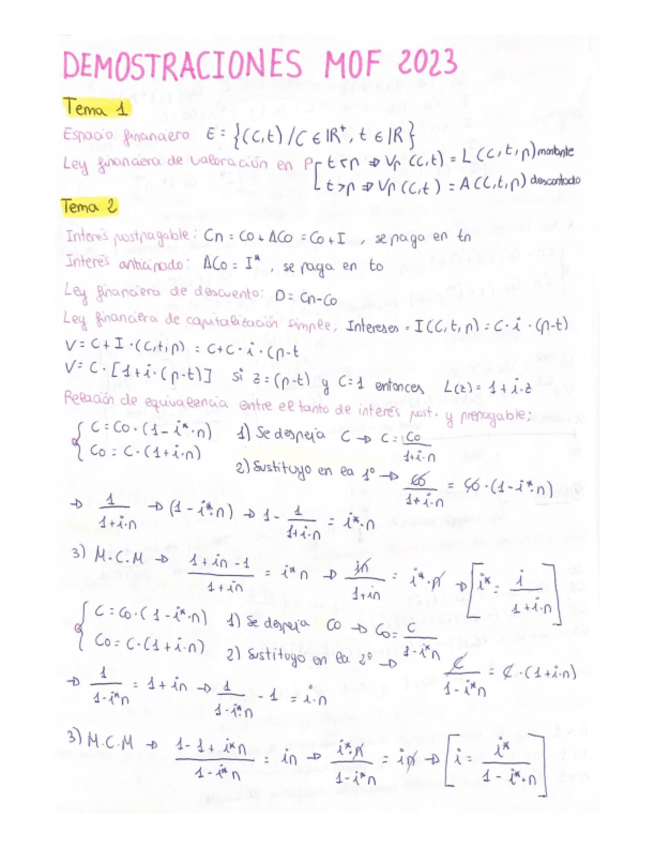 DEMOSTRACIONES MOF 2023
Tema 1
Espacio financiero E = {(C,t) / C ∈ IR⁺, t ∈ IR}
Ley financiera de valoración en P t<p ⇒ Vp (C,t) = L (C,t,p) montante
t>p ⇒ Vp (C,t) = A(C,t,p) descontado
Tema 2
Interés postpagable: Cn = C0 + ΔC0 = C0 + I , se paga en tn
Interés anticipado: ΔC0 = I*, se paga en t0
Ley financiera de descuento: D = Cn-C0
Ley financiera de capitalización simple; Intereses = I(C,t,p) = C · i · (p-t)
V = C + I · (C,t,p) = C+C · i · (p-t
V = C · [1+i·(p-t)] si z = (p-t) y C=1 entonces L(z) = 1 + i·z
Relación de equivalencia entre el tanto de interés post. y prepagable;
{ C = C0 · (1 - i*·n) 1) Se despeja C → C = C0 / (1+i·n)
C0 = C · (1+i·n) 2) Sustituyo en la 1º → C0 / (1+i·n) = C0 · (1-i*·n)
→ 1 / (1+i·n) → (1 - i*·n) → 1 - 1 / (1+i·n) = i*·n
3) M.C.M → (1+in-1) / (1+in) = i*n → in / (1+in) = i*·n → [i* = i / (1+i·n)]
{ C = C0·(1-i*·n) 1) Se despeja C0 → C0 = C / (1-i*n)
C0 = C·(1+i·n) 2) Sustituyo en la 2º → C / (1-i*n) = C·(1+i·n)
→ 1 / (1-i*n) = 1+in → 1 / (1-i*·n) - 1 = i·n
3) M.C.M → (1-1+i*n) / (1-i*n) = in → i*·n / (1-i*n) = in → [i = i* / (1-i*·n)]